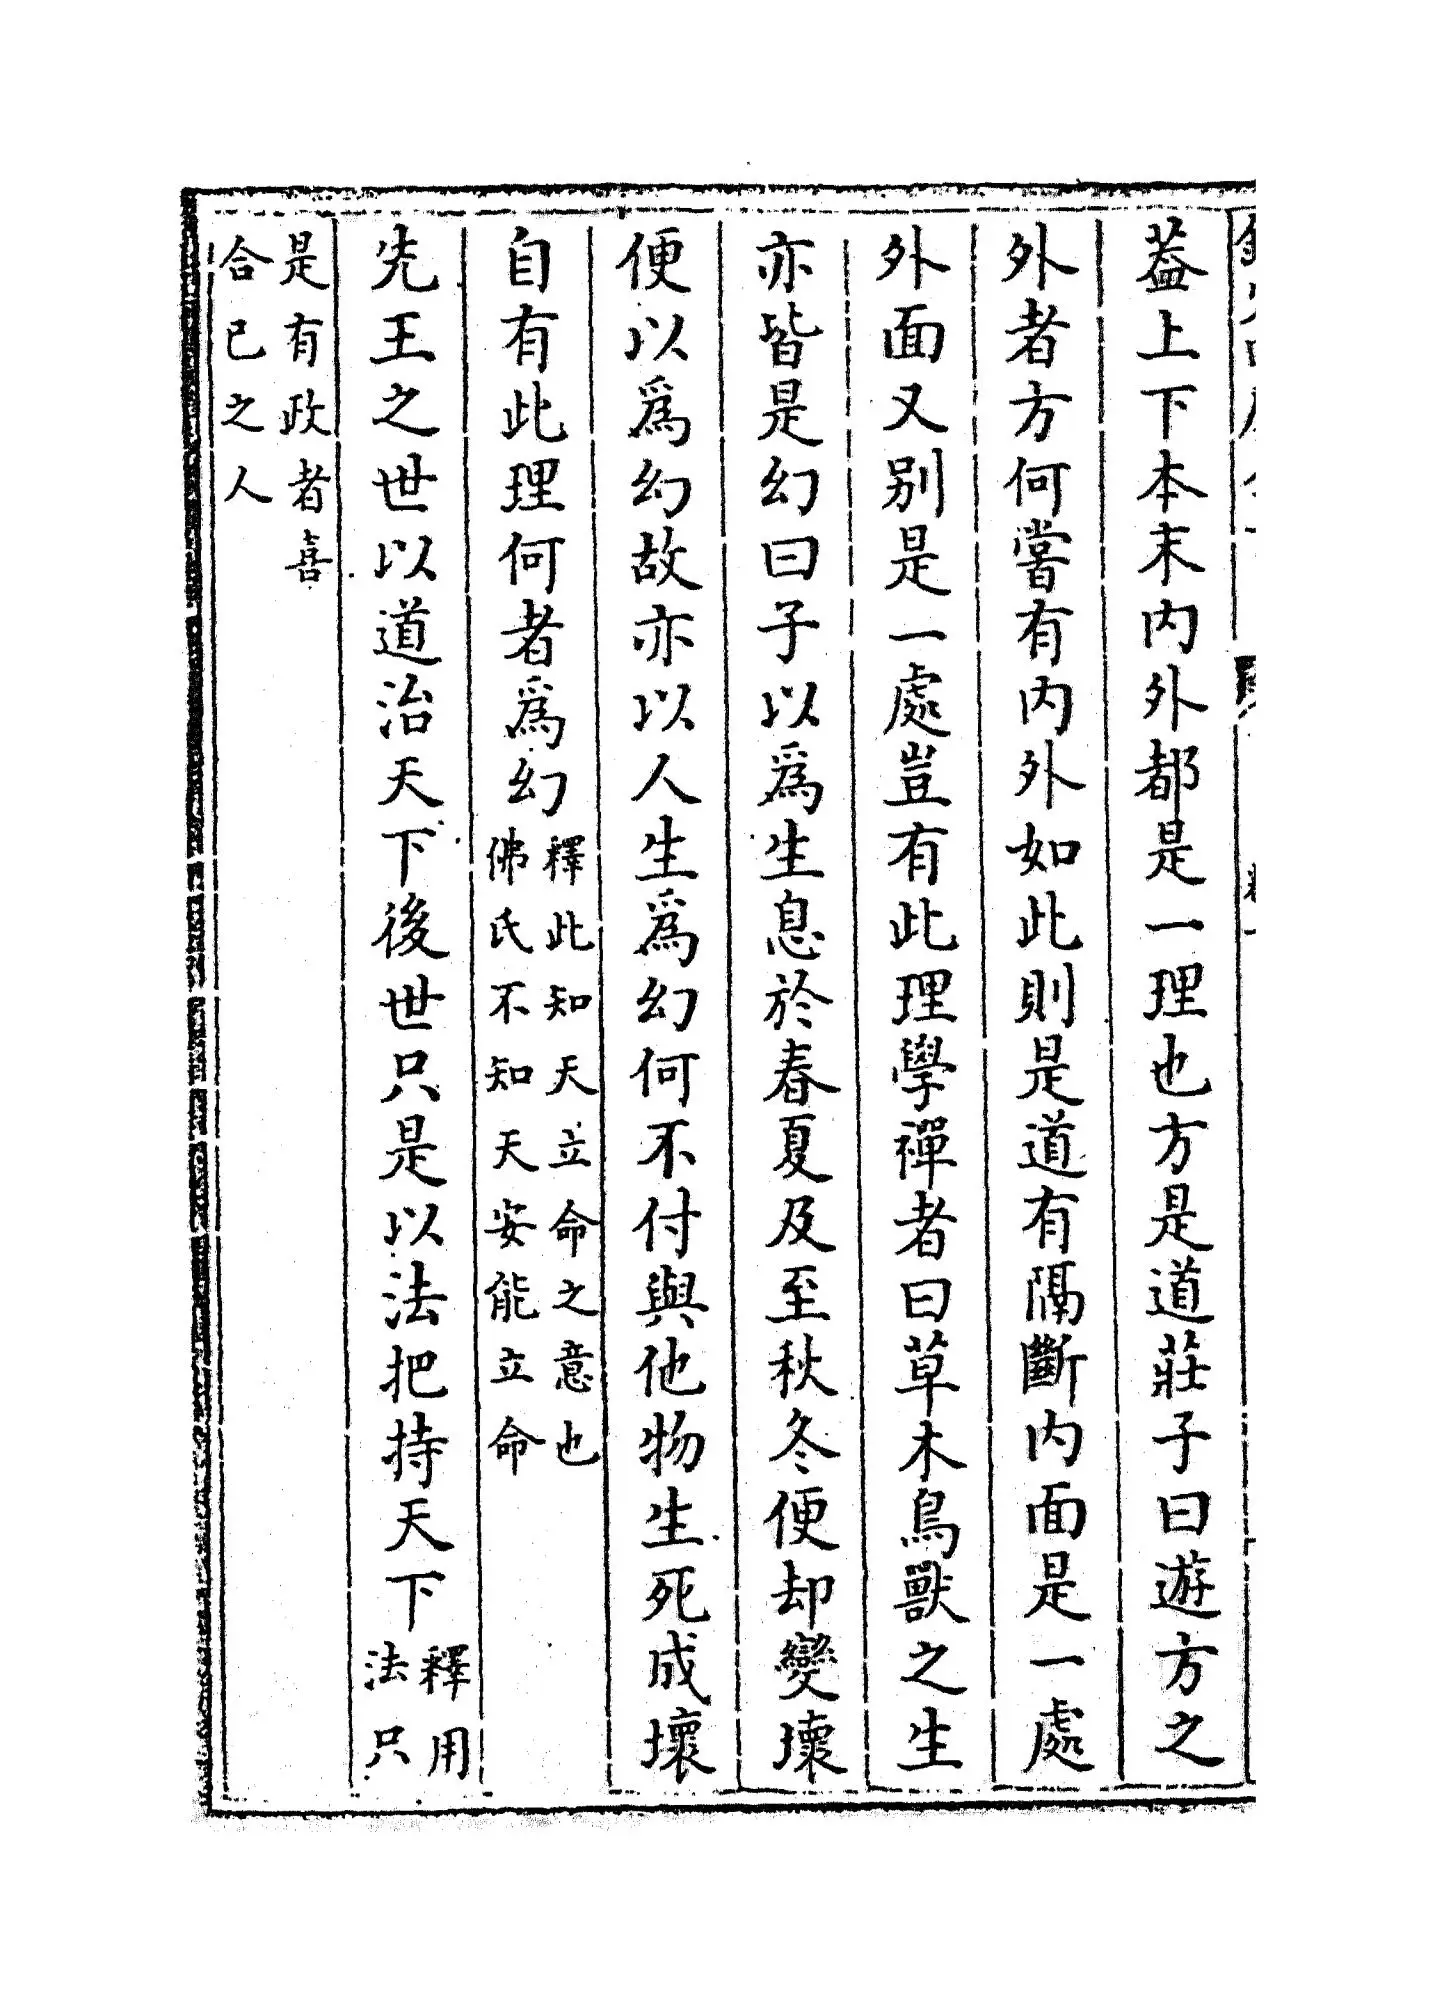 葢上下本末内外都是一理也方是道莊子曰遊方之
外者方何嘗有内外如此則是道有隔斷内面是一處
外面又别是一處豈有此理學禪者曰草木鳥獸之生
亦皆是幻曰子以爲生息於春夏及至秋冬便却變壞
便以爲幻故亦以人生爲幻何不付與他物生死成壞
自有此理何者爲幻
釋此知天立命之意也
佛氏不知天安能立命
先王之世以道治天下後世只是以法把持天下
釋用
法只
是有政者喜
合已之人